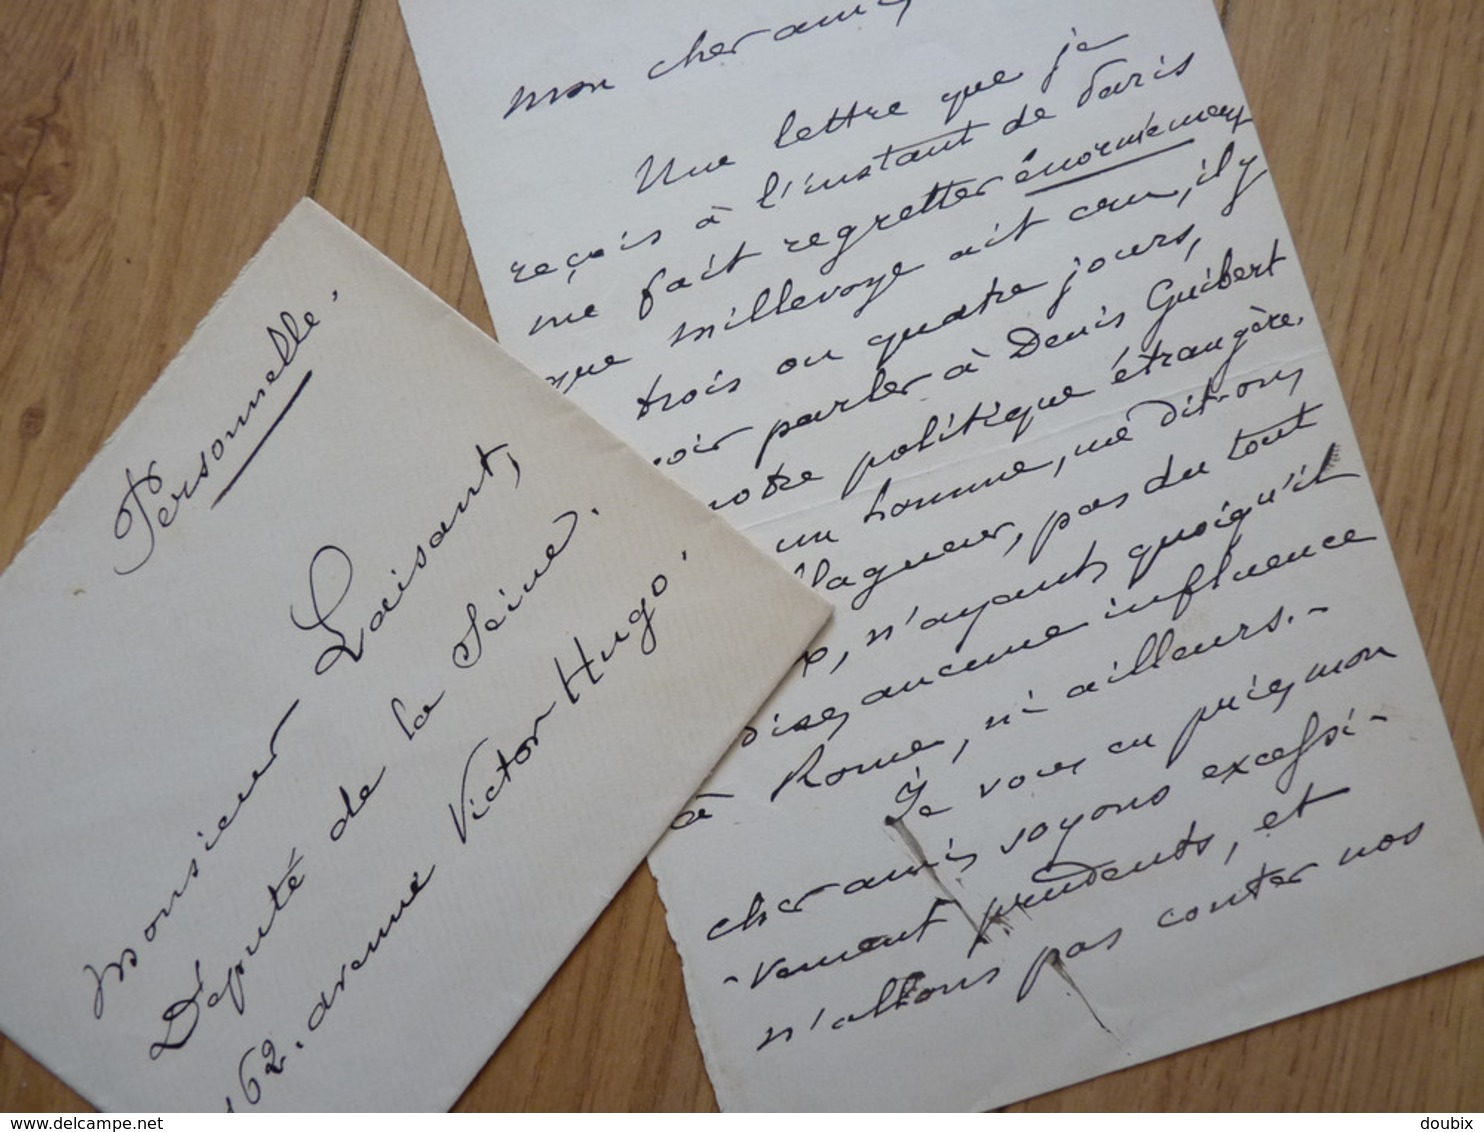 Personnelle.
Monsieur Laisant,
Député de la Seine.
162. avenue Victor Hugo.
Mon cher ami,
Une lettre que je
reçois à l'instant de Paris
me fait regretter énormément
que Millevoye ait cru, il y
trois ou quatre jours,
voir parler à Denis Guibert
notre politique étrangère.
un homme, me dit-on,
blagueur, pas du tout
, n'ayant, quoiqu'il
dise, aucune influence
à Rome, ni ailleurs. -
Je vous en prie, mon
cher ami, soyons excessi-
-vement prudents, et
n'allons pas conter nos
delcampe.net
doubix